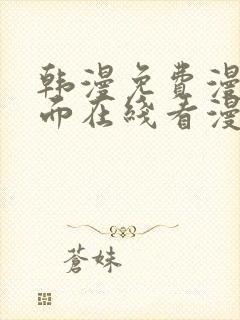 韩漫免费漫
而在线看漫
蒼妹